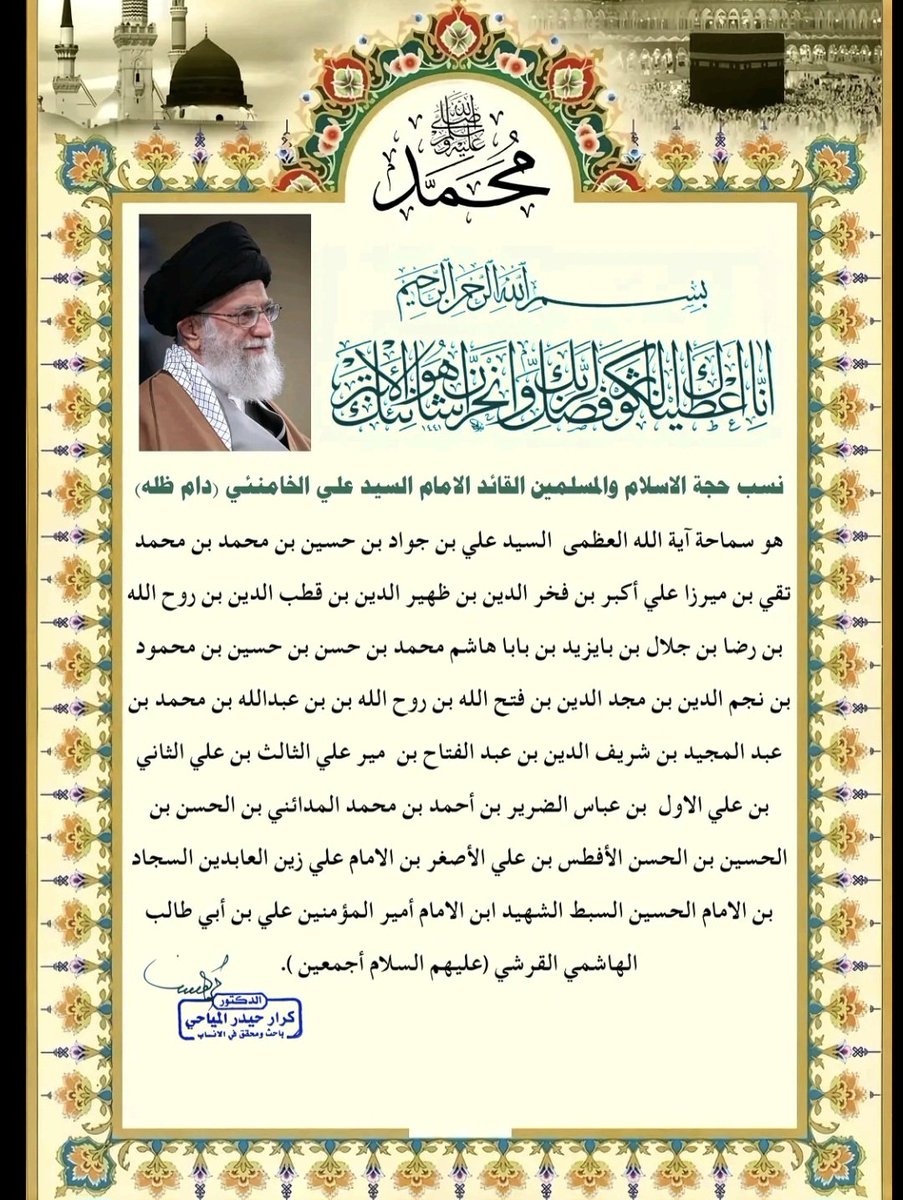 محمد
صلى الله عليه وسلم
بسم الله الرحمن الرحيم
إنا أعطيناك الكوثر فصل لربك وانحر إن شانئك هو الأبتر
١٤٤١
نسب حجة الاسلام والمسلمين القائد الامام السيد علي الخامنئي (دام ظله)
هو سماحة آية الله العظمى السيد علي بن جواد بن حسين بن محمد بن محمد
تقي بن ميرزا علي أكبر بن فخر الدين بن ظهير الدين بن قطب الدين بن روح الله
بن رضا بن جلال بن بايزيد بن بابا هاشم محمد بن حسن بن حسين بن محمود
بن نجم الدين بن مجد الدين بن فتح الله بن روح الله بن بن عبدالله بن محمد بن
عبد المجيد بن شريف الدين بن عبد الفتاح بن مير علي الثالث بن علي الثاني
بن علي الاول بن عباس الضرير بن أحمد بن محمد المدائني بن الحسن بن
الحسين بن الحسن الأفطس بن علي الأصغر بن الامام علي زين العابدين السجاد
بن الامام الحسين السبط الشهيد ابن الامام أمير المؤمنين علي بن أبي طالب
الهاشمي القرشي (عليهم السلام أجمعين ).
الدكتور
كرار حيدر المياحي
باحث ومحقق في الانساب